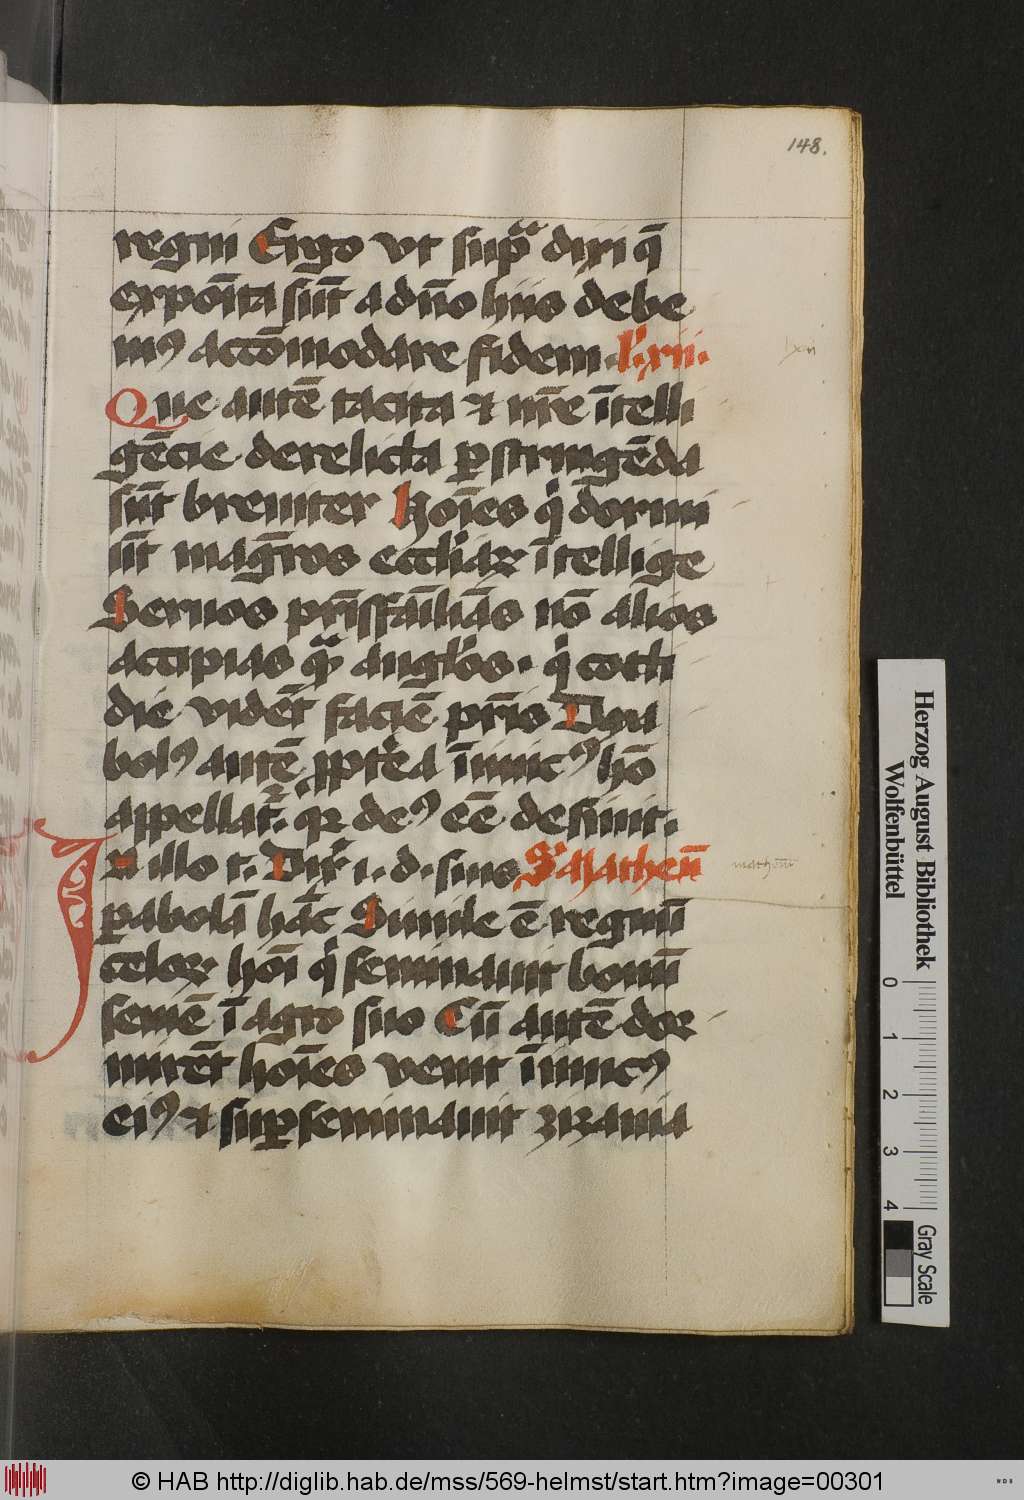 148.
regni Ergo vt sup̃ dixi q̄
expoīta sūt a dn̄o hiis debe
mꝰ accōmodare fidem. l'. xii.
Que autē tacita ⁊ nr̄e ītelli
gēcie derelicta ꝑstringēda
sūt breuiter Hoīes qͥ dormi
ūt magr̄os eccl'iaꝝ ītellige
Seruos pr̄isfaīliās nō alios
accipias qͣꝫ angl'os. qͥ coti
die vidēt faciē pr̄is Dya
bolꝰ autē ꝓpt'ea īimicꝰ hō
appellat᷑. qꝛ deꝰ eē desiuit.
In illo t. Dix͛ i. d. suis S. Matheū
ꝑabolā hāc Simile ē regnū
celoꝝ hoī qͥ seminauit bonū
semē ī agro suo Cū autē dor
mirēt hoīes venit īimicꝰ
eiꝰ ⁊ suꝑseminauit zizania
lxii
matheū
Herzog August Bibliothek
Wolfenbüttel
0 1 2 3 4
Gray Scale
© HAB http://diglib.hab.de/mss/569-helmst/start.htm?image=00301